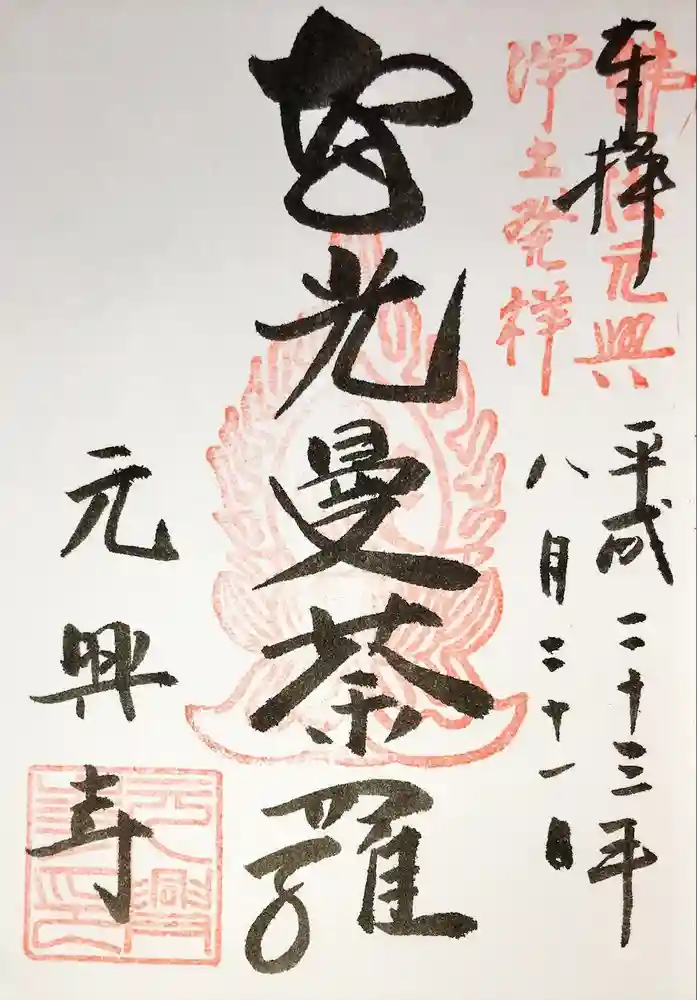 奉拝
佛法元興
浄土発祥
平成二十三年
八月二十一日
智光曼荼羅
元興寺
元興寺印